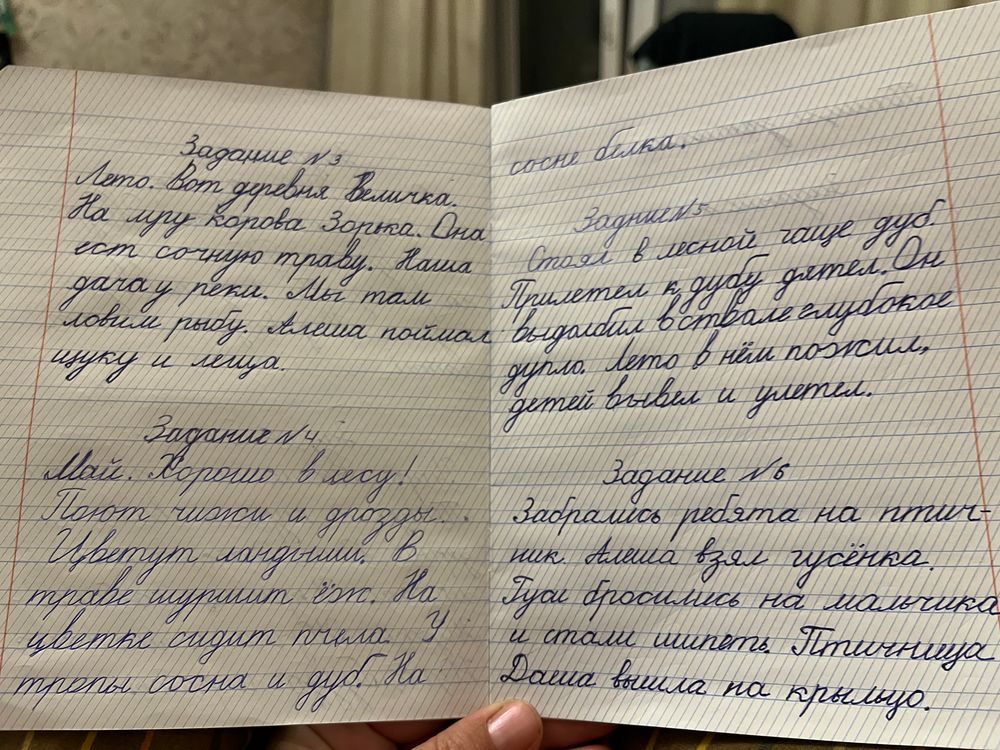 Задание №3
Лето. Вот деревня Величка.
На лугу корова Зорька. Она
ест сочную траву. Наша
дача у реки. Мы там
ловим рыбу. Алеша поймал
щуку и леща.
Задание №4
Май. Хорошо в лесу!
Поют чижи и дрозды.
Цветут ландыши. В
траве шуршит ёж. На
цветке сидит пчела. У
тропы сосна и дуб. На
сосне белка.
Задние №5
Стоял в лесной чаще дуб.
Прилетел к дубу дятел. Он
выдолбил в стволе глубокое
дупло. Лето в нём пожил,
детей вывел и улетел.
Задание №6
Забрались ребята на птич-
ник. Алеша взял гусёнка.
Гуси бросились на мальчика
и стали шипеть. Птичница
Даша вышла на крыльцо.